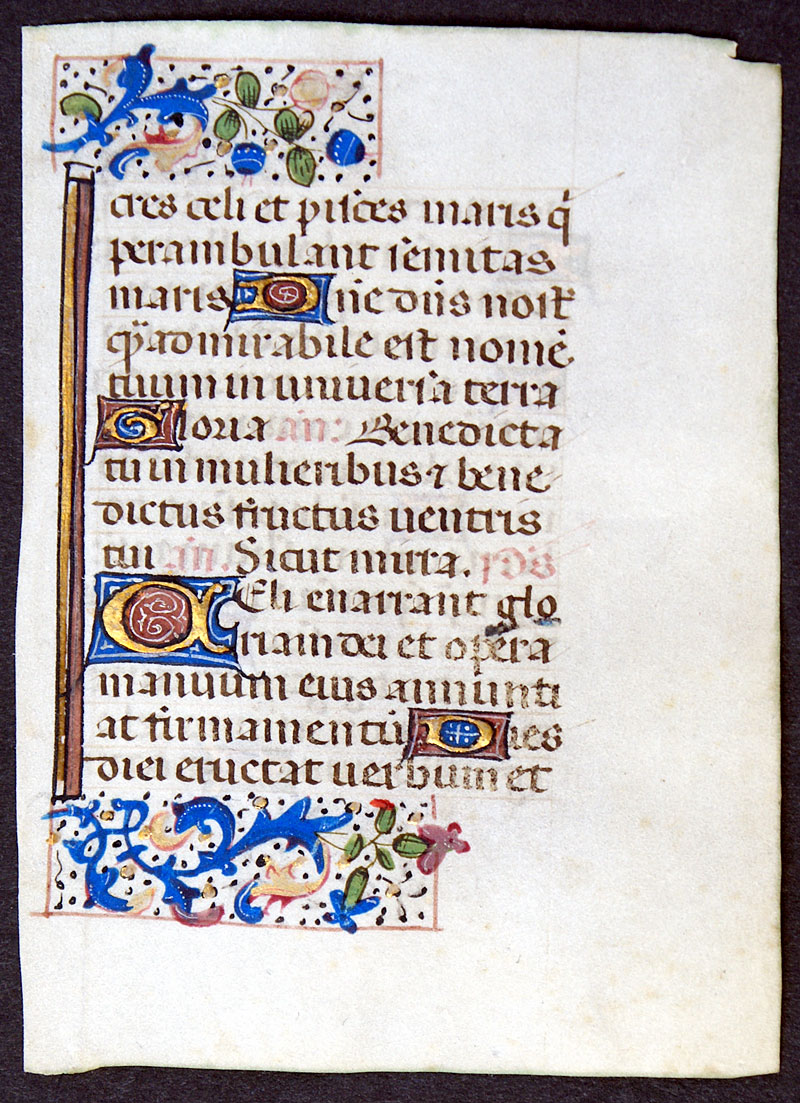 cres celi et pisces maris q̄
perambulant semitas
maris Dn̄e dn̄s nost̄
qͣ admirabile est nomē
tuum in universa terra
Gloria an̄. Benedicta
tu in mulieribus ⁊ bene
dictus fructus ventris
tui an̄. Sicut mirra. p̄s
CEli enarrant glo
riam dei et opera
manuum eius annunti
at firmamentū Dies
diei eructat verbum et